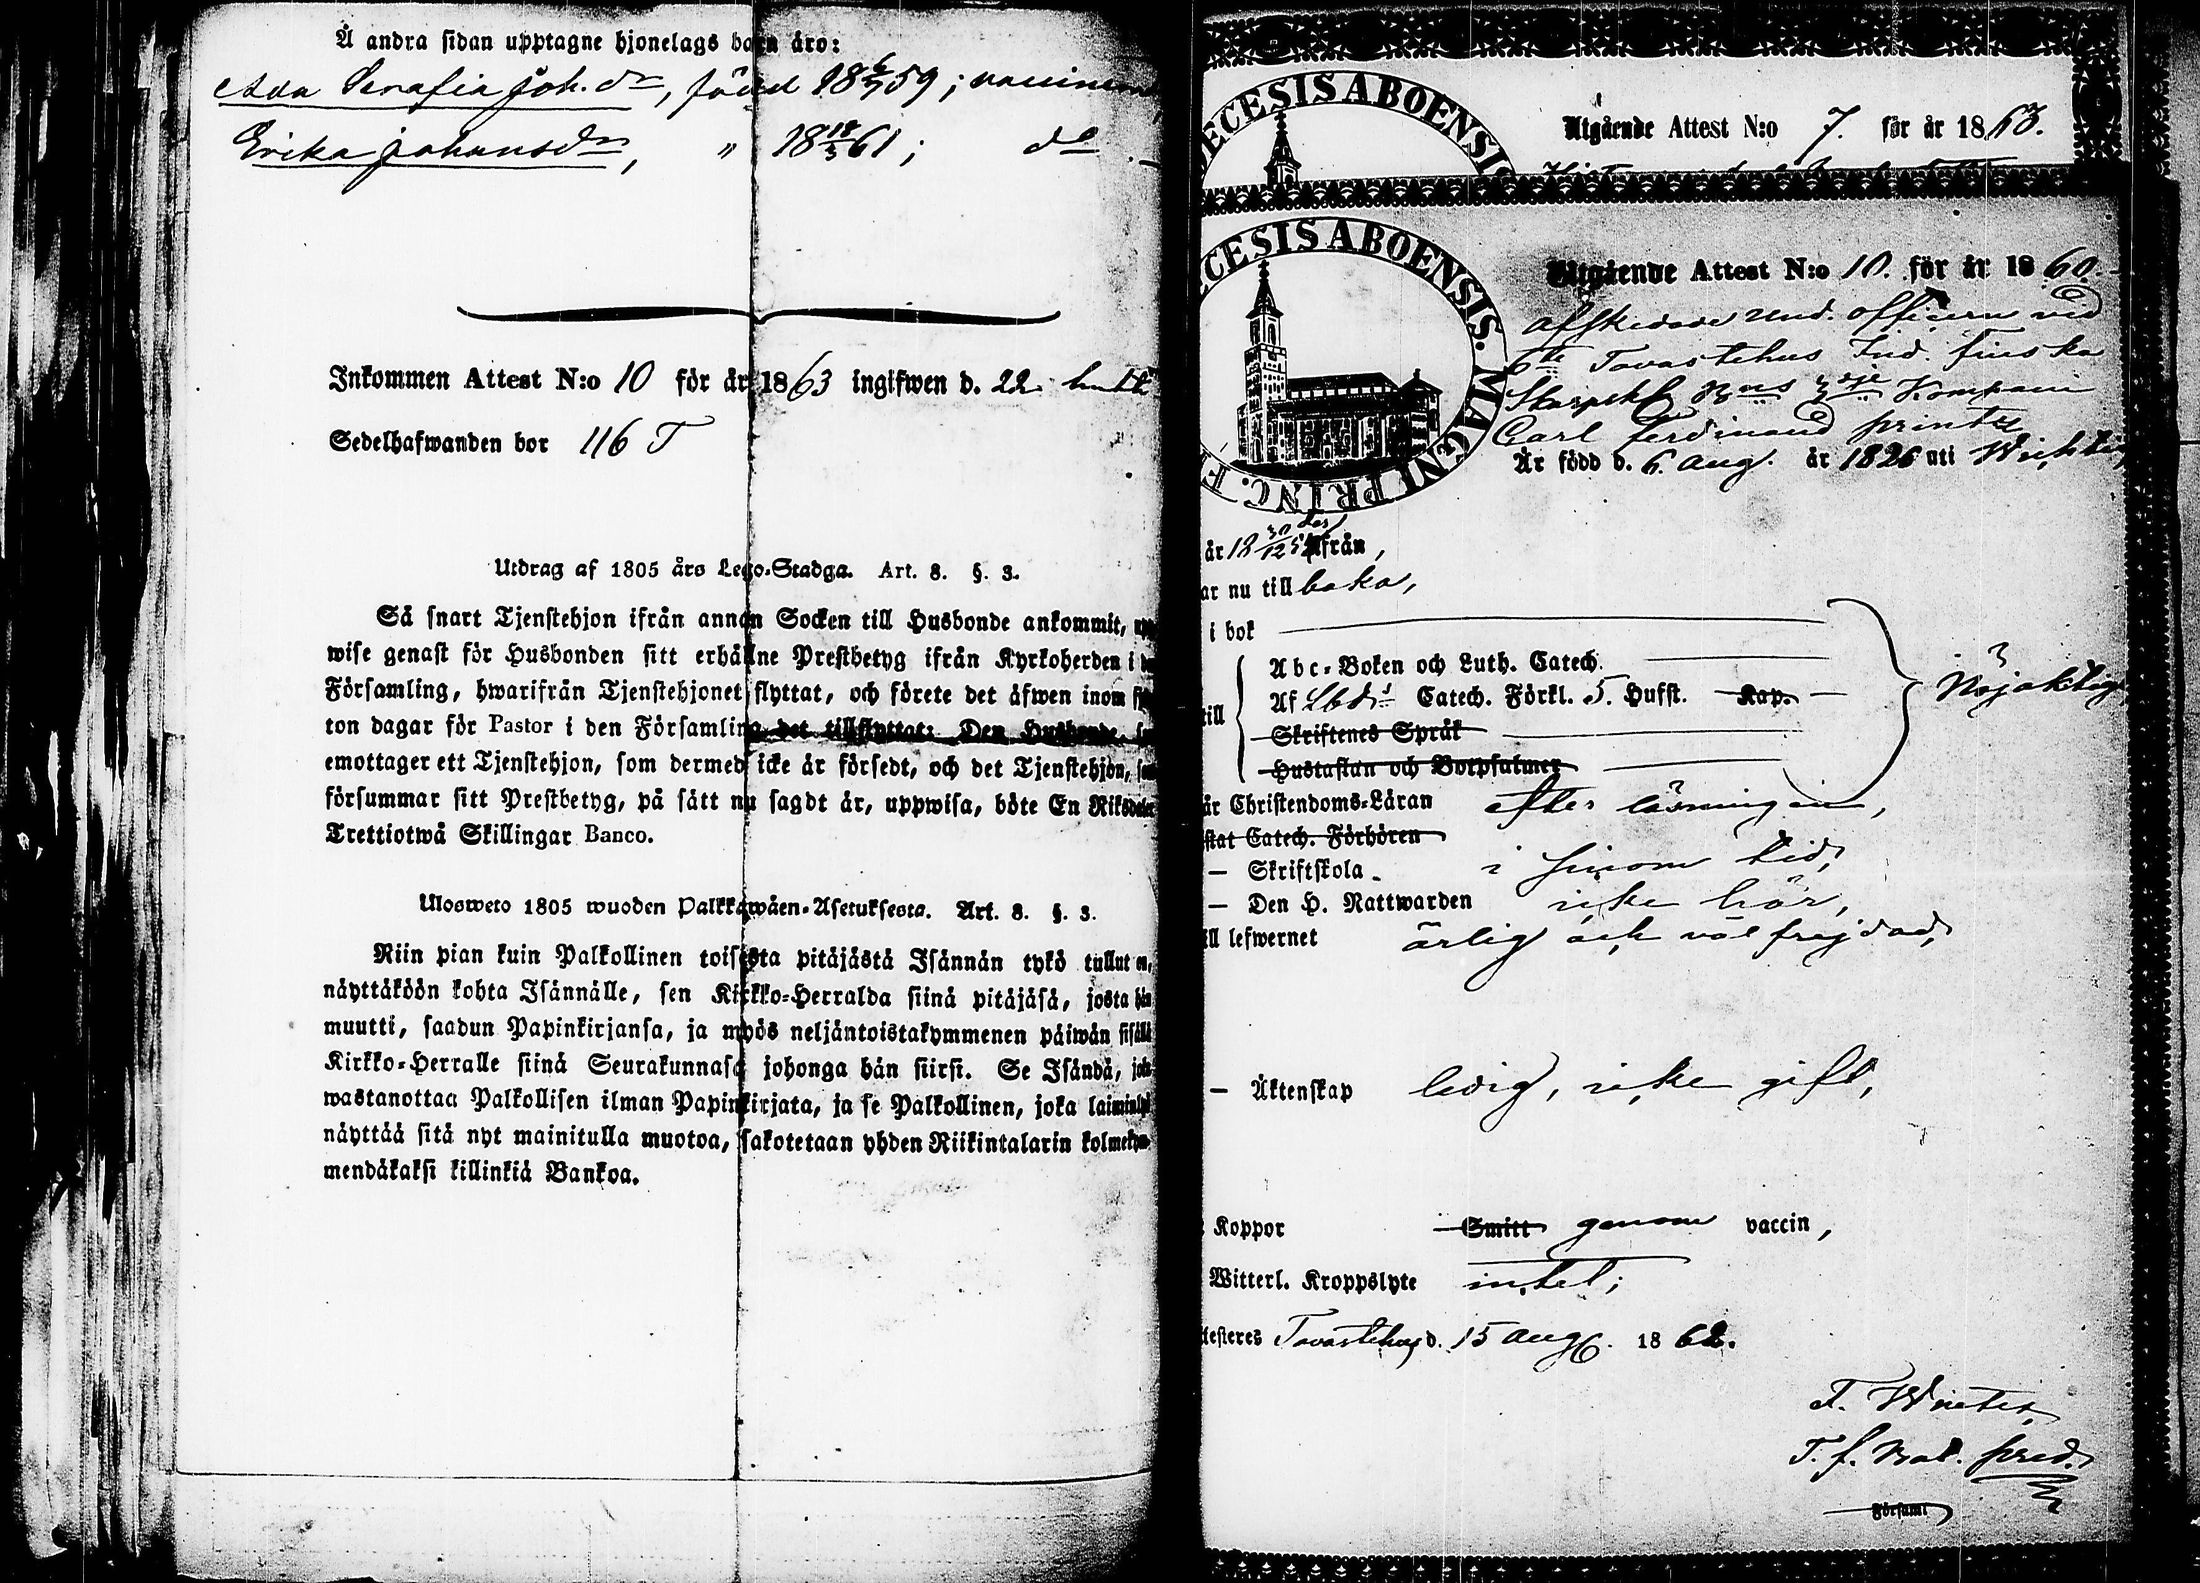 Å andra sidan upptagne hjonelags barn äro:
Ada Serafia Joh. dr, född 18 6/7 59; vaccinerad
Erika Johansdr, " 18 18/3 61; do
Inkommen Attest N:o 10 för år 1863 ingifwen d. 22
Sedelhafwanden bor 116 T
Utdrag af 1805 års Lego-Stadga. Art. 8. §. 3.
Så snart Tjenstehjon ifrån annan Socken till Husbonde ankommit, upp-
wise genast för Husbonden sitt erhållne Prestbetyg ifrån Kyrkoherden i den
Församling, hwarifrån Tjenstehjonet flyttat, och förete det äfwen inom fjor-
ton dagar för Pastor i den Församling det tillflyttat: Den Husbonde, som
emottager ett Tjenstehjon, som dermed icke är försedt, och det Tjenstehjon, som
försummar sitt Prestbetyg, på sätt nu sagdt är, uppwisa, böte En Riksdaler
Trettiotwå Skillingar Banco.
Ulosweto 1805 wuoden Palkkawäen-Asetuksesta. Art. 8. §. 3.
Niin pian kuin Palkollinen toisesta pitäjästä Isännän tykö tullut on,
näyttäköön kohta Isännälle, sen Kirkko-Herralda siinä pitäjäsä, josta hän
muutti, saadun Papinkirjansa, ja myös neljäntoistakymmenen päiwän sisällä
Kirkko-Herralle siinä Seurakunnasa johonga hän siirsi. Se Isändä, joka
wastanottaa Palkollisen ilman Papinkirjata, ja se Palkollinen, joka laiminlyö
näyttää sitä nyt mainitulla muotoa, sakotetaan yhden Riikintalarin kolmekym-
mendäkaksi killinkiä Bankoa.
ECESIS ABOENSIS
Utgående Attest N:o 7. för år 1863.
ECESIS ABOENSIS. MAGNI PRINC. F
Utgående Attest N:o 10. för år 1860.
Afskedade Und. officern vid
6te Tavastehus Ind. finska
Skarpsk. B:ns 3dje Kompani
Carl Ferdinand Printz
Är född d. 6. Aug. år 1826 uti Wichtis
år 18 30/12 ifrån,
ar nu tillbaka,
i bok
Abc-Boken och Luth. Catech.
till Af Catech. Förkl. 5. Hufst. Kap.
Skriftenes Språk
Hustaflan och Botpsalmer
Nöjaktig
är Christendoms-Läran efter läsningen,
stat Catech. Förhören
— Skriftskola i sinom tid,
— Den H. Nattwarden icke här,
ill lefwernet ärlig och väl frejdad,
— Äktenskap ledig, icke gift,
Koppor Smitt genom vaccin,
Witterl. Kroppslyte intet;
testeres Tavastehus d. 15 Aug. 1862.
F. Winter
T. f. Bat. Pred.
Församl